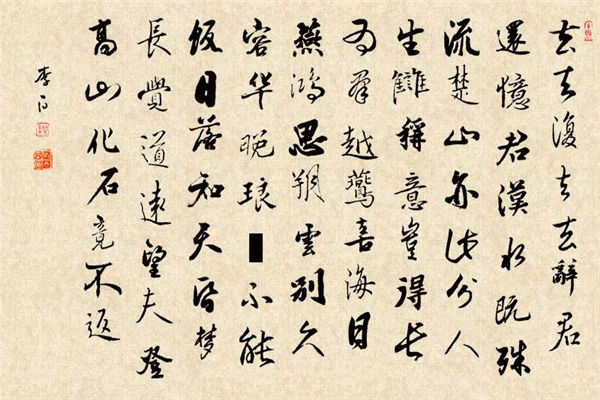 去去復去去辭君
還憶君漢水既殊
流楚山亦此分人
生難稱意豈得長
为群越鷰喜海日
燕鴻思朔雲别久
容华晚琅不能
饭日落知天昏梦
長覺道遠望夫登
高山化石竟不返
李白